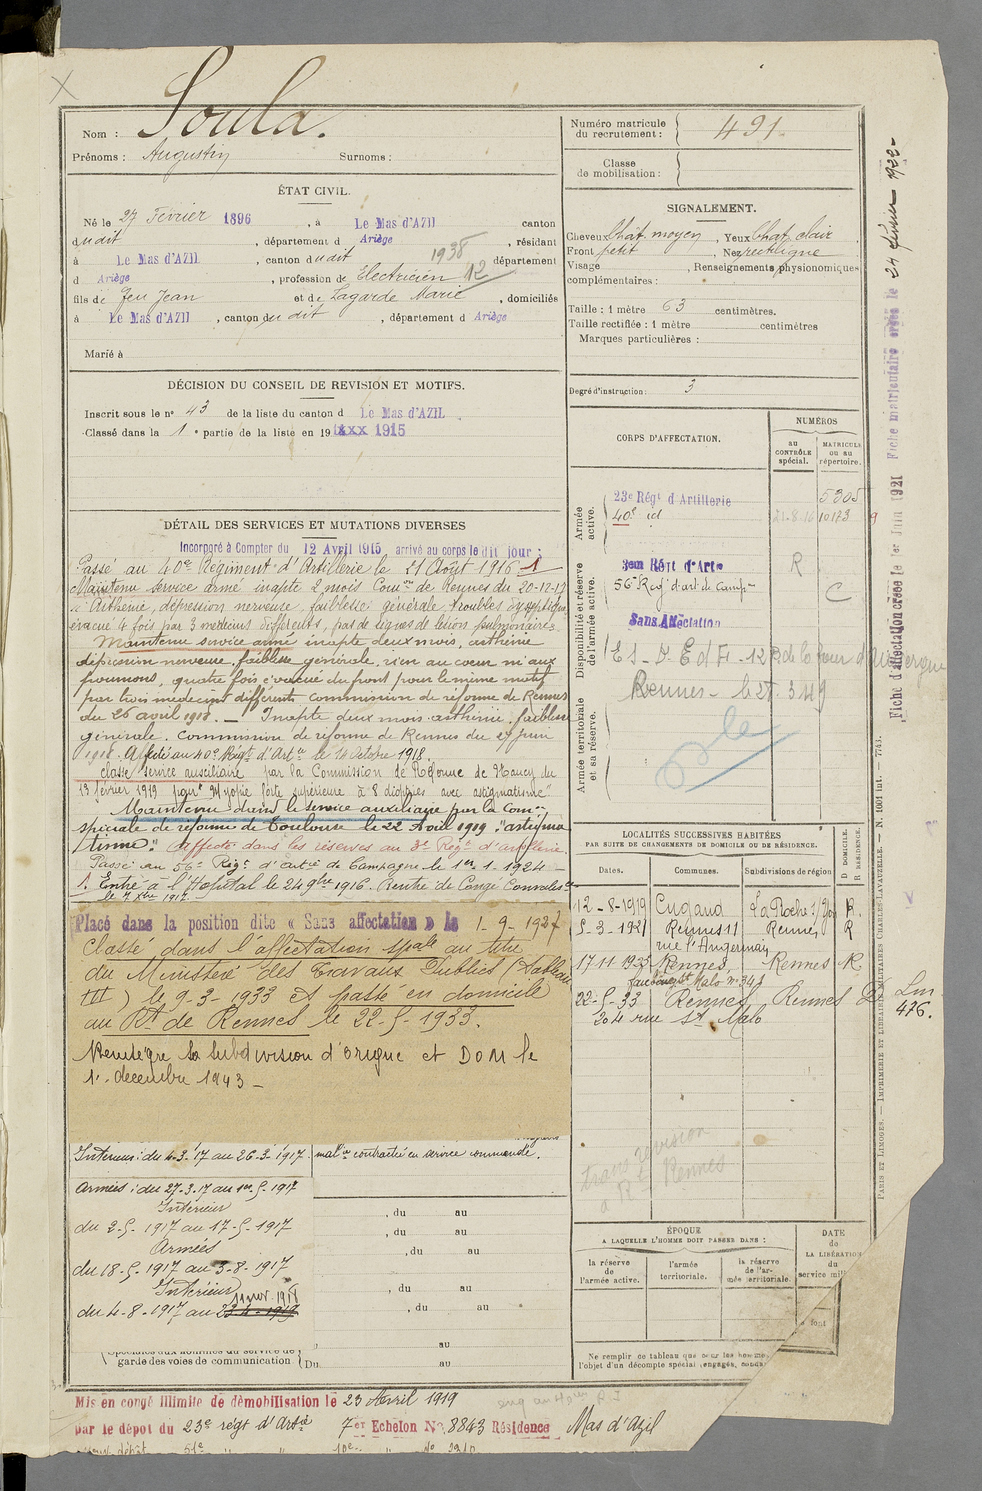 Soula.
Nom :
Prénoms : Augustin Surnoms :
Numéro matricule du recrutement : 491.
Classe de mobilisation :
ÉTAT CIVIL.
Né le 27 Février 1896, à Le Mas d'AZIL canton
dudit, département d Ariège, résidant
à Le Mas d'AZIL, canton dudit 1938 département
d Ariège, profession de Electricien 12
fils de feu Jean et de Lagarde Marie, domiciliés
à Le Mas d'AZIL, canton du dit, département d Ariège
Marié à
SIGNALEMENT.
Cheveux Chât. moyen, Yeux Chat. clair
Front petit, Nez rectiligne
Visage, Renseignements physionomiques
complémentaires :
Taille : 1 mètre 63 centimètres.
Taille rectifiée : 1 mètre centimètres
Marques particulières :
Degré d'instruction : 3
DÉCISION DU CONSEIL DE REVISION ET MOTIFS.
Inscrit sous le n° 43 de la liste du canton d Le Mas d'AZIL
Classé dans la 1e partie de la liste en 19 1915
DÉTAIL DES SERVICES ET MUTATIONS DIVERSES
Incorporé à Compter du 12 Avril 1915 arrivé au corps le dit jour ;
Passé au 40e Régiment d'Artillerie le 21 Août 1916 1
Maintenu service armé inapte 2 mois Comon de Rennes du 20-12-17
Asthénie, dépression nerveuse, faiblesse générale, troubles dyspeptiques
évacué 4 fois par 3 médecins différents, pas de signes de lésion pulmonaire.
Maintenu service armé inapte deux mois, asthénie
dépression nerveuse, faiblesse générale, rien au coeur ni aux
poumons, quatre fois évacué du front pour le même motif
par trois médecins différents Commission de réforme de Rennes
du 26 avril 1918. — Inapte deux mois asthénie, faiblesse
générale. Commission de réforme de Rennes du 27 juin
1918. Affecté au 40e Régt d'Artie le 14 Octobre 1918.
classé service auxiliaire par la Commission de Réforme de Nancy du
13 février 1919 pour "Myopie forte supérieure à 8 dioptries avec astigmatisme"
Maintenu dans le service auxiliaire par la Comon
spéciale de réforme de Toulouse le 22 Août 1919 "astigma
tisme". Affecté dans les réserves au 3e Régt d'artillerie.
Passé au 56e Régt d'artie de Campagne le 1er-1-1924
1. Entré à l'Hôpital le 24 9bre 1916. Rentré de Congé Convalesce
le 7 Xbre 1917.
Placé dans la position dite « Sans affectation » le 1-9-1927
Classé dans l'affectation spale au titre
du Ministère des Travaux Publics (Tableau
III) le 9-3-1933 et passé en domicile
au Rt de Rennes le 22-5-1933.
Réintègre sa subdivision d'origine et DOM le
1er decembre 1943 -
Intérieur : du 4-3-17 au 26-3-1917.
malie contractée en service commandé.
Armées : du 27-3-17 au 1er-5-1917
Intérieur
du 2-5-1917 au 17-5-1917
Armées
du 18-5-1917 au 3-8-1917
Intérieur
du 4-8-1917 au
, du au
, du au
, du au
, du au
, du au
au
garde des voies de communication Du au
CORPS D'AFFECTATION.
NUMÉROS
AU CONTRÔLE spécial.
MATRICULE ou au répertoire.
Armée active.
23e Régt d'Artillerie 5305
40e id 21-8-16 10173 9
Disponibilité et réserve de l'armée active.
3eme Régt d'Artie R
56e Regt d'art de Camp C
Sans Affectation
Rennes
Armée territoriale et sa réserve.
LOCALITÉS SUCCESSIVES HABITÉES
PAR SUITE DE CHANGEMENTS DE DOMICILE OU DE RÉSIDENCE.
Dates. Communes. Subdivisions de région
D DOMICILE.
R RÉSIDENCE.
12-8-1919 Cugand La Roche s/ Yon R.
5-3-1921 Rennes 11 Rennes R
17 11 1925 Rennes, Rennes R
22-5-33 Rennes Rennes D
204 rue St Malo
476.
trans revision
à Rt Rennes
ÉPOQUE
A LAQUELLE L'HOMME DOIT PASSER DANS :
la réserve de l'armée active.
l'armée territoriale.
la réserve de l'armée territoriale.
DATE de LA LIBÉRATION du service mil
Ne remplir ce tableau que pour les hommes
l'objet d'un décompte spécial (engagés,
Fiche d'affectation créée le 1er Juin 1921 Fiche matriculaire créée le 24 février 1922
PARIS ET LIMOGES. — IMPRIMERIE ET LIBRAIRIE MILITAIRES CHARLES-LAVAUZELLE. — N. 1001 int. — 7743.
Mis en congé illimité de démobilisation le 23 Avril 1919
par le dépôt du 23e régt d'Artie 7er Echelon No 8843 Résidence Mas d'Azil